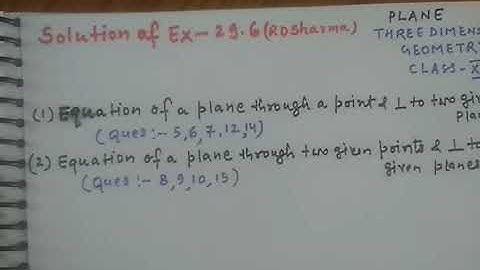 Solution of Ex-29.6 (RD Sharma)
PLANE
THREE DIMENS
GEOMETR
CLASS-X
(1) Equation of a plane through a point & ⊥ to two giv
plan
(Ques :- 5,6,7,12,14)
(2) Equation of a plane through two given points & ⊥ to
given planes
(Ques :- 8,9,10,15)